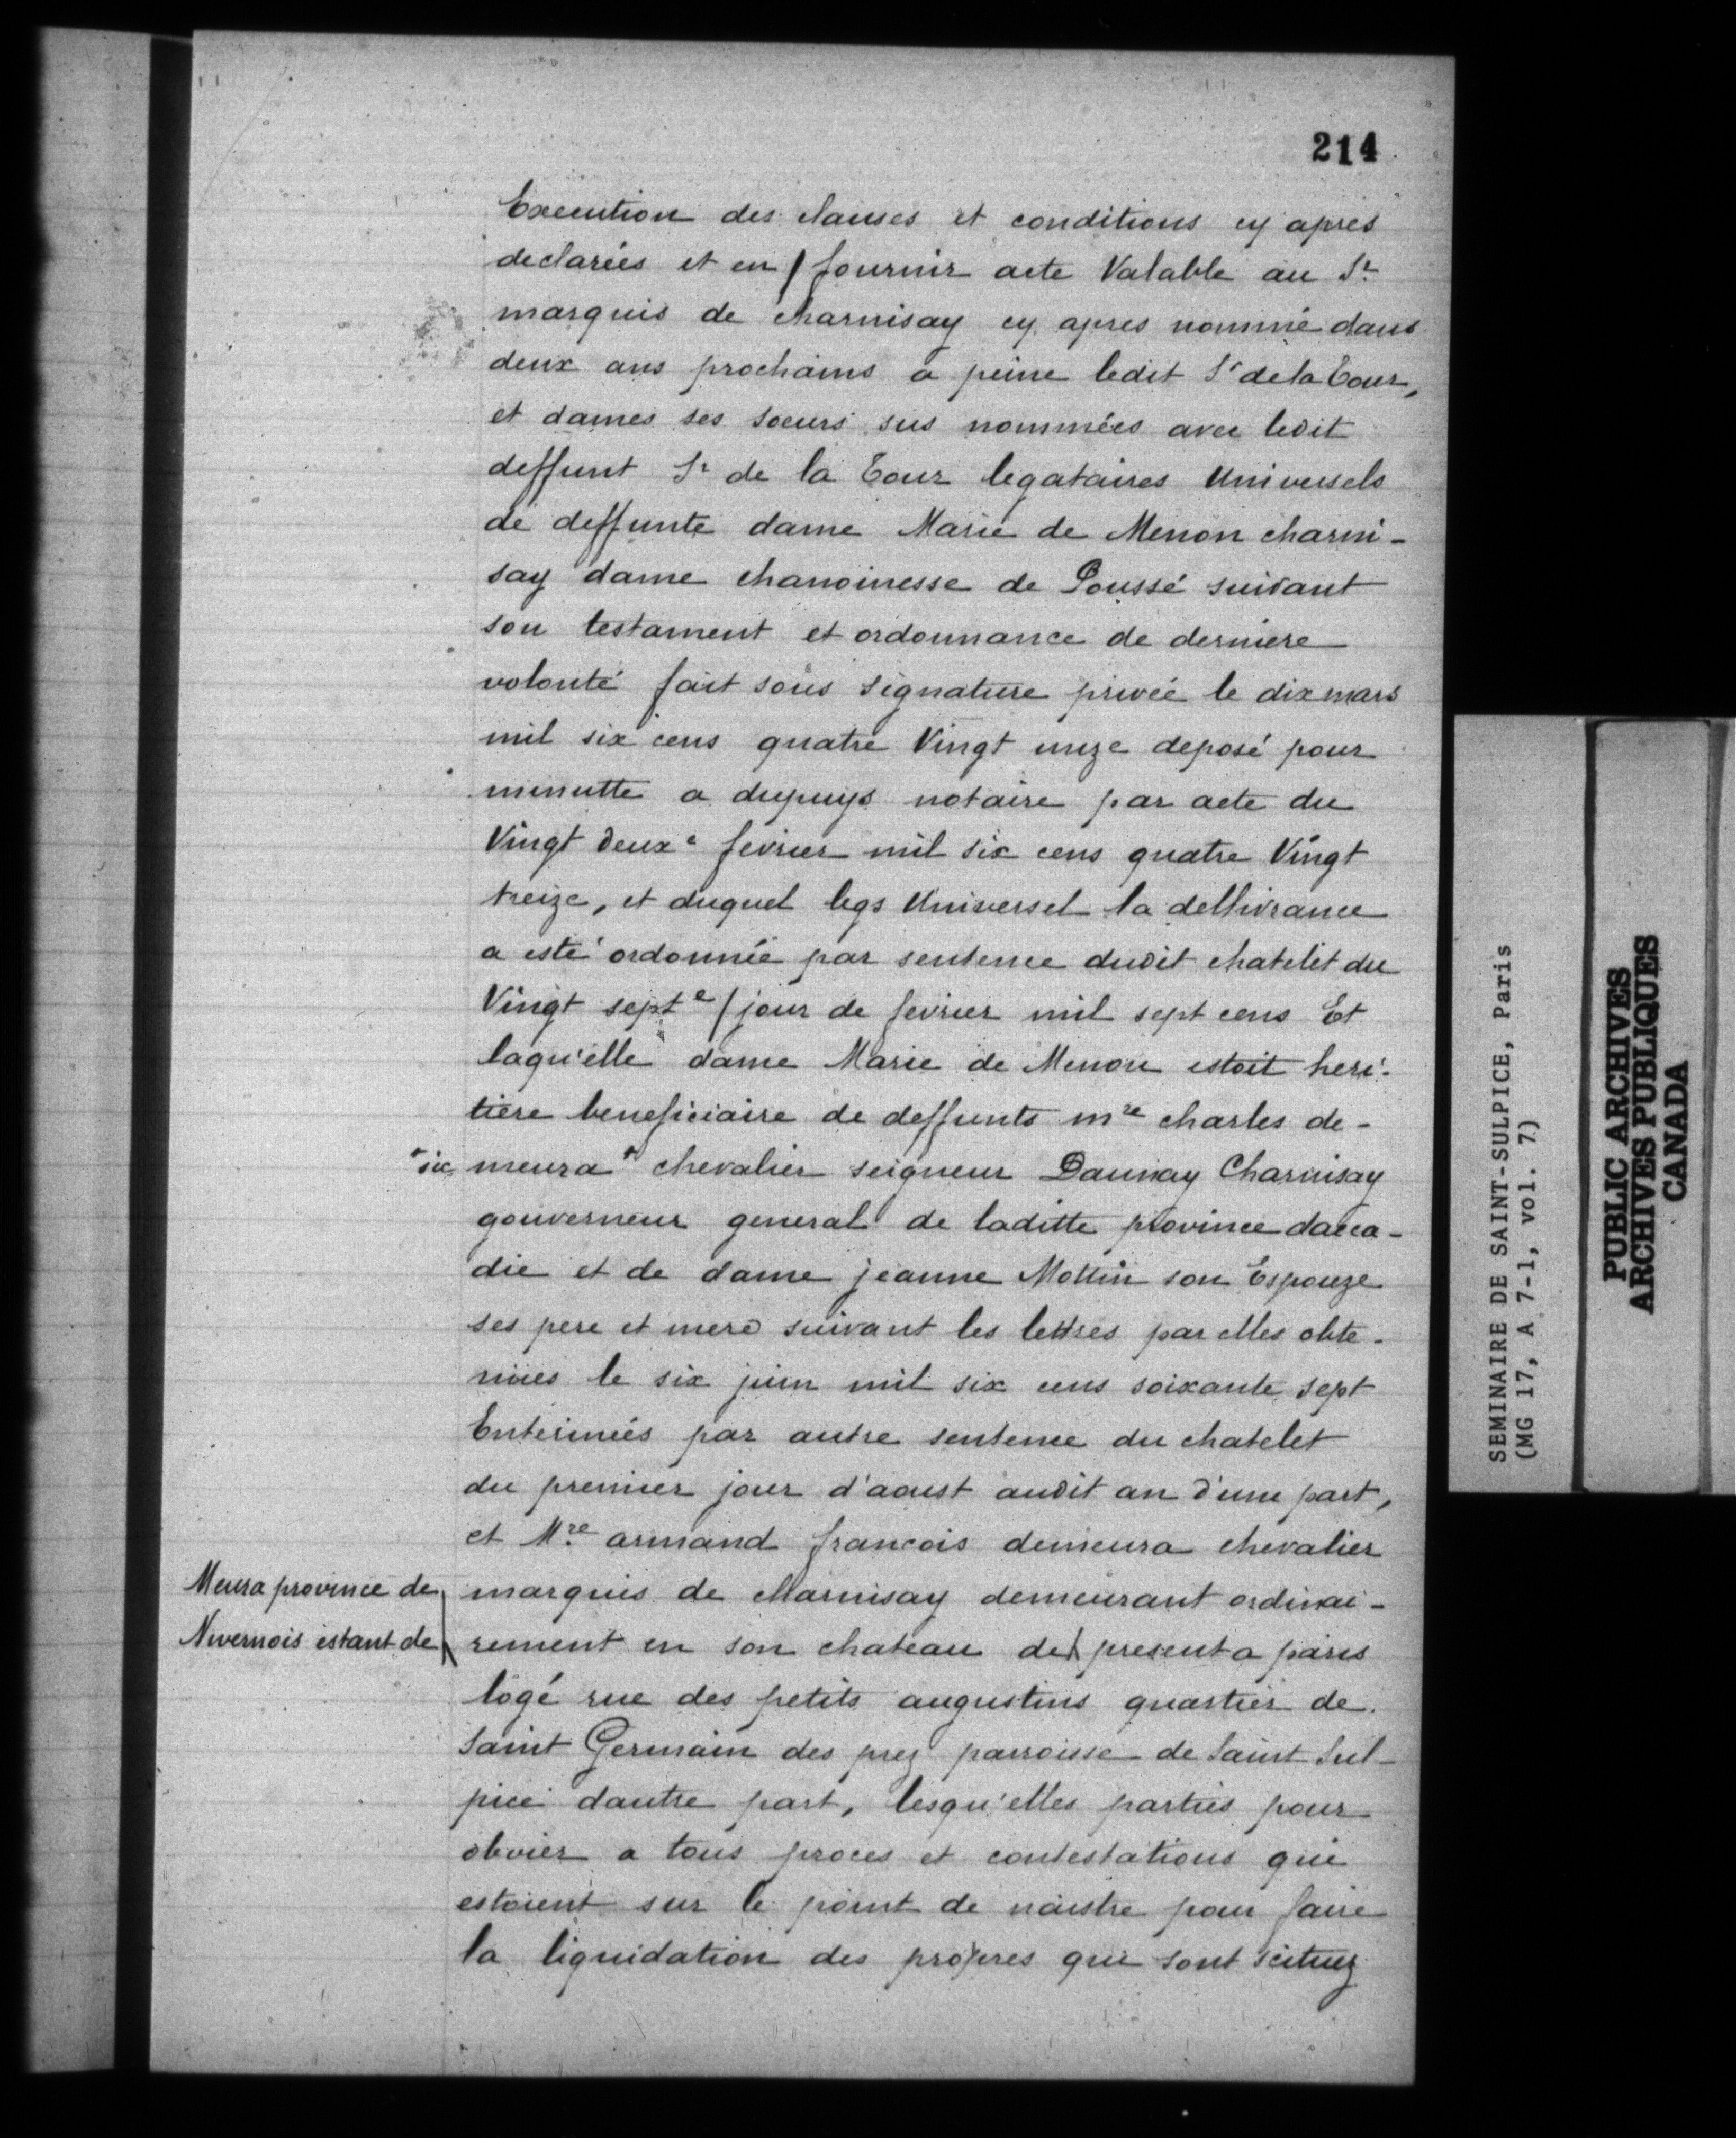 214
Execution des clauses et conditions cy apres
declarées et en / fournir acte Valable au Sr
marquis de charnisay cy apres nommé dans
deux ans prochains a peine ledit Sr de la Tour,
et dames ses soeurs sus nommées avec ledit
deffunt Sr de la Tour legataires Universels
de deffunte dame Marie de Menon charni-
say dame chanoinesse de Poussé suivant
son testament et ordonnance de derniere
volonté fait sous signature privée le dix mars
mil six cens quatre Vingt unze deposé pour
minutte a dupuys notaire par acte du
Vingt deuxe fevrier mil six cens quatre Vingt
treize, et duquel legs Universel la dellivrance
a esté ordonnée par sentence dudit chatelet du
Vingt septe / jour de fevrier mil sept cens Et
laqu'elle dame Marie de Menou estoit heri-
tiere beneficiaire de deffunts mre charles de-
+sic meura + chevalier seigneur Daunay Charnisay
gouverneur general de laditte province dacca-
die et de dame jeanne Mottin son Espouze
ses pere et mere suivant les lettres par elles obte-
nües le six juin mil six cens soixante sept
Enterinées par autre sentence du chatelet
du premier jour d'aoust audit an d'une part,
et Mre armand francois demeura chevalier
marquis de charnisay demeurant ordinai-
rement en son chateau de \ present a paris
Meura province de
Nivernois estant de \
logé rue des petits augustins quartier de
Saint Germain des prez parroisse de Saint Sul-
pice dautre part, lesqu'elles parties pour
obvier a tous proces et contestations qui
estoient sur le point de naistre pour faire
la liquidation des propres qui sont scituez
SEMINAIRE DE SAINT-SULPICE, Paris
(MG 17, A 7-1, vol. 7)
PUBLIC ARCHIVES
ARCHIVES PUBLIQUES
CANADA